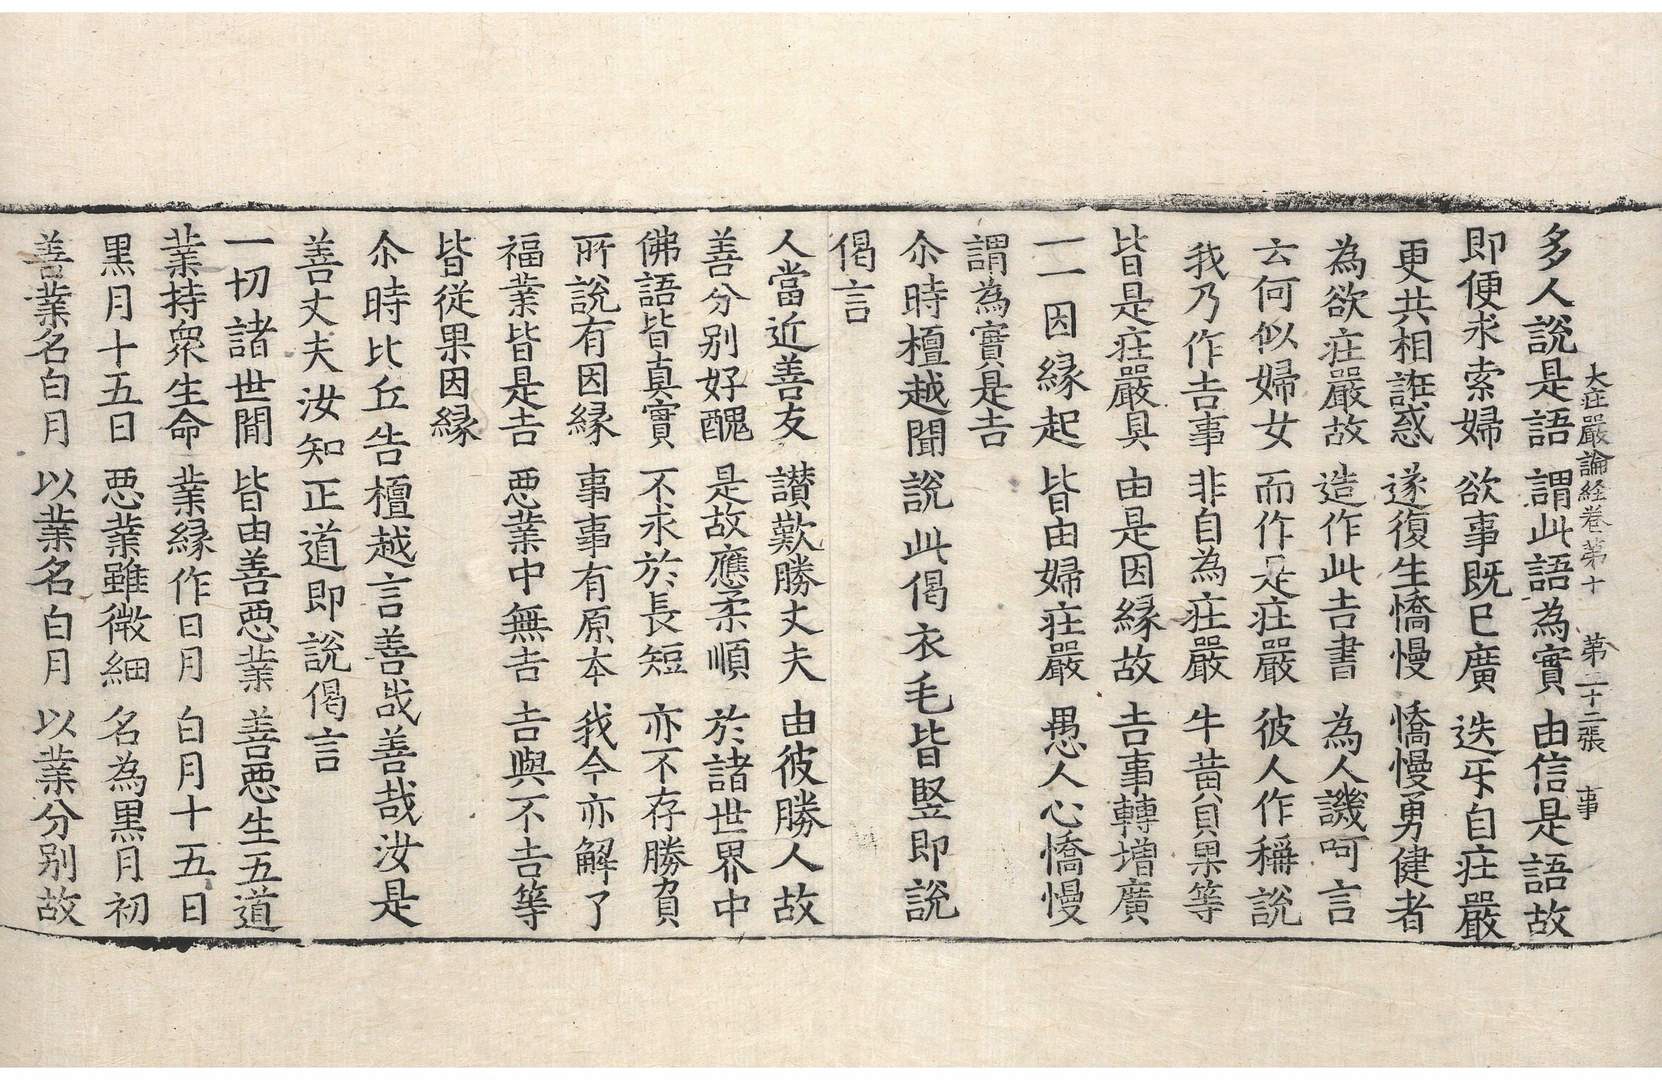 大莊嚴論經卷第十　第二十二張　事
多人說是語　謂此語為實　由信是語故
即便求索婦　欲事既已廣　迭互自莊嚴
更共相誑惑　遂復生憍慢　憍慢勇健者
為欲莊嚴故　造作此吉書　為人譏呵言
云何似婦女　而作是莊嚴　彼人作稱說
我乃作吉事　非自為莊嚴　牛黃貝果等
皆是莊嚴具　由是因緣故　吉事轉增廣
一一因緣起　皆由婦莊嚴　愚人心憍慢
謂為實是吉
尒時檀越聞說此偈衣毛皆竪即說
偈言
人當近善友　讃歎勝丈夫　由彼勝人故
善分別好醜　是故應柔順　於諸世界中
佛語皆真實　不求於長短　亦不存勝負
所說有因緣　事事有原本　我今亦解了
福業皆是吉　惡業中無吉　吉與不吉等
皆從果因緣
尒時比丘告檀越言善哉善哉汝是
善丈夫汝知正道即說偈言
一切諸世間　皆由善惡業　善惡生五道
業持衆生命　業緣作日月　白月十五日
黑月十五日　惡業雖微細　名為黑月初
善業名白月　以業名白月　以業分別故